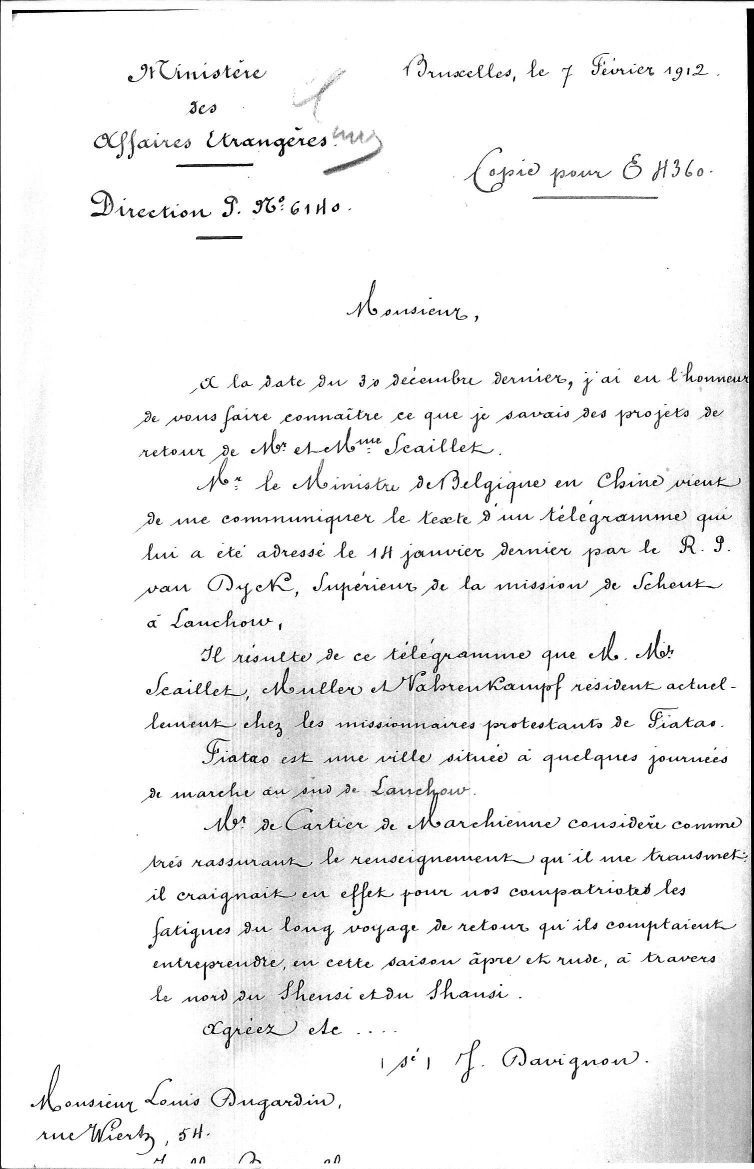 Ministère
des
Affaires Etrangères.
Direction P. Nº 6140.
Bruxelles, le 7 Février 1912.
Copie pour E 4360.
Monsieur,
A la date du 30 décembre dernier, j'ai eu l'honneur
de vous faire connaître ce que je savais des projets de
retour de Mr et Mme Scaillet.
Mr le Ministre de Belgique en Chine vient
de me communiquer le texte d'un télégramme qui
lui a été adressé le 14 janvier dernier par le R. P.
van Dyck, Supérieur de la mission de Scheut
à Lanchow,
Il résulte de ce télégramme que M. Mrs
Scaillet, Muller et Vahrenkampf résident actuel-
lement chez les missionnaires protestants de Fiatao.
Fiatao est une ville située à quelques journées
de marche au sud de Lanchow.
Mr de Cartier de Marchienne considère comme
très rassurant le renseignement qu'il me transmet;
il craignait en effet pour nos compatriotes les
fatigues du long voyage de retour qu'ils comptaient
entreprendre, en cette saison âpre et rude, à travers
le nord du Shensi et du Shansi.
Agréez etc ....
(sé) J. Davignon.
Monsieur Louis Dugardin,
rue Wiertz, 54.